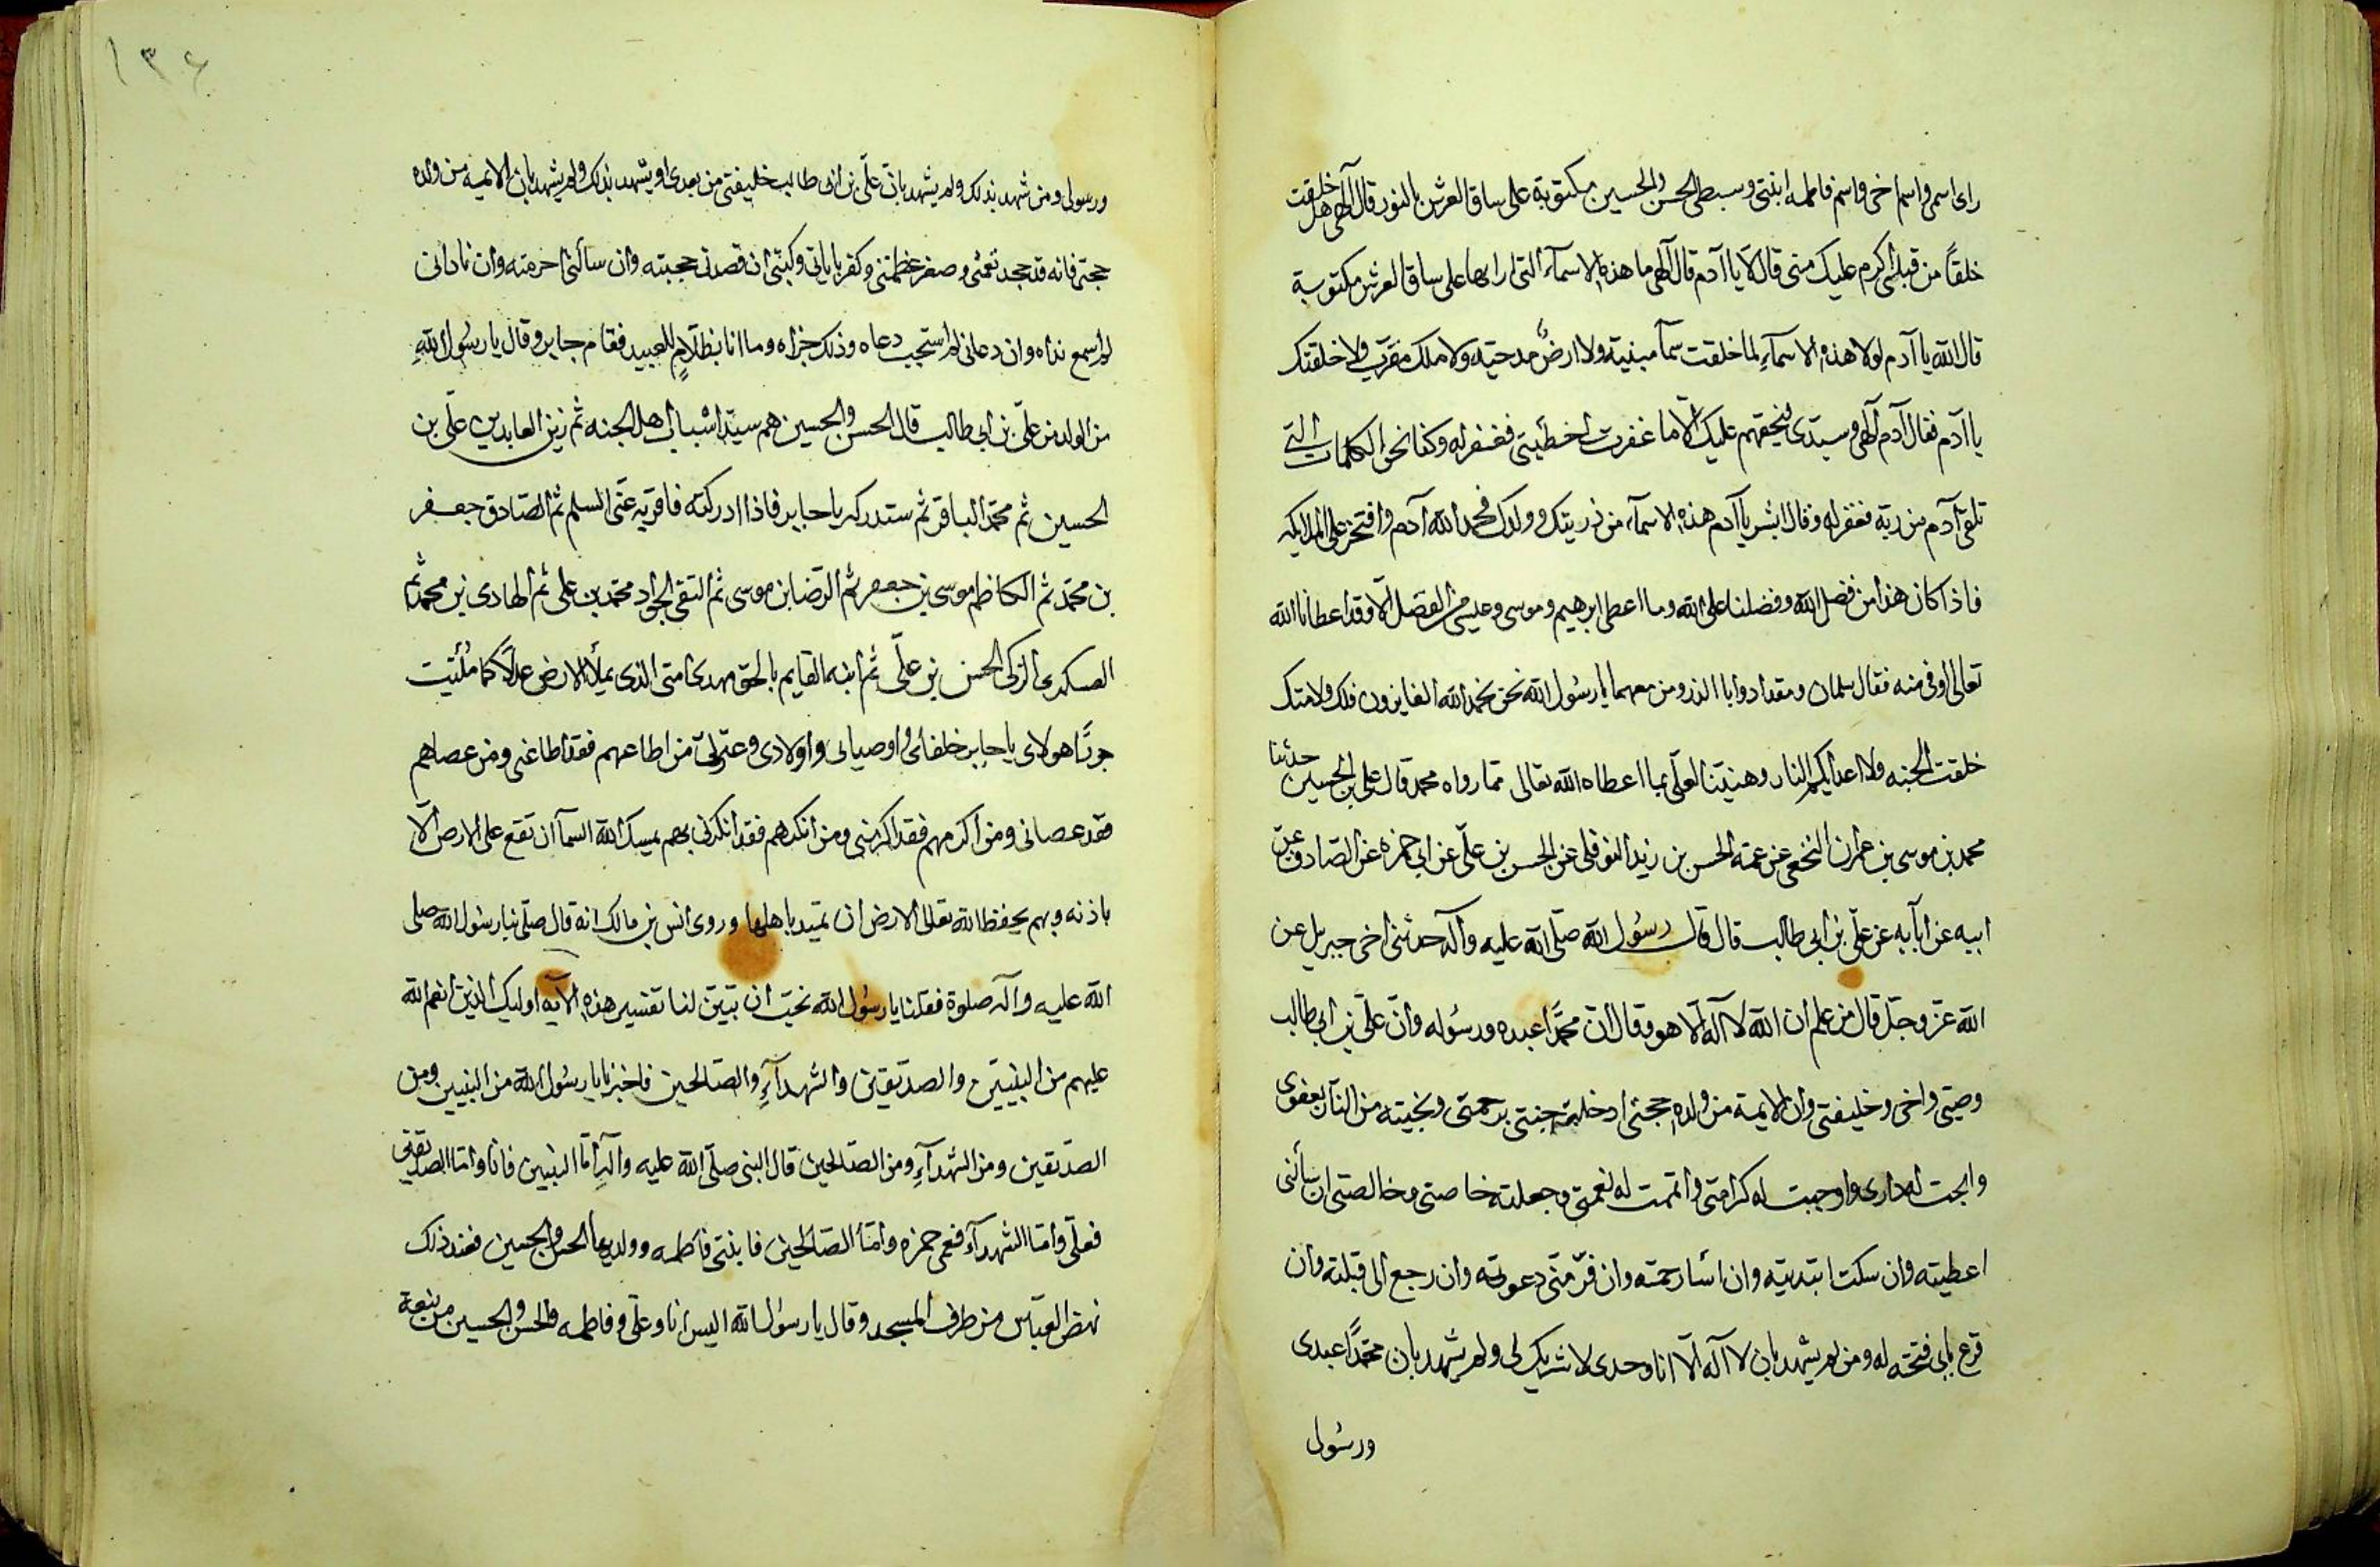 رای اسمی واسم اخی واسم فاطمه ابنتی وسبطی الحسن والحسین مکتوبة علی ساق العرش بالنور قال آلهی هل خلقت
خلقاً من قبلی اکرم علیک منی قال لا یا آدم قال آلهی ما هذه الاسمآء التی اراها علی ساق العرش مکتوبة
قال الله یا آدم لولا هذه الاسمآءِ لما خلقت سمآ مبنیة ولا ارضٌ مدحیّه ولا ملک مقرّب ولا خلقتک
یا آدم فقال آدم آلهی وسیّدی فبحقهم علیک الّا ما غفرت خطیئتی فغفر له وکنا نحن الکلمات التی
تلقی آدم من ربّه فغفر له وقال ابشر یا آدم هذه الاسمآء من ذریتک وولدک فحمد الله آدم وافتخر علی الملایکه
فاذا کان هذا من فضل الله وفضلنا علی الله وما اعطی ابرهیم وموسی وعیسی من الفضل الّا وقد اعطانا الله
تعالی اوفی منه فقال سلمان ومقداد وابا الذر ومن معهما یا رسُول الله نحن بحمد الله الفایزون فلک ولامتک
خلقت الجنه ولاعدایکم النار وهنیئا لعلّی بما اعطاه الله تعالی ممّا رواه محمد قال علی بن الحسین حدّثنا
محمد بن موسی بن عمران النخعی عن عمّه الحسن بن زید النوفلی عن الحسن بن علّی عن ابی حمزه عن الصّادق عن
ابیه عن ابآیه عن علّی بن ابی طالب قال قال رسُول الله صلّی الله علیه وآله حدثنی اخی جبریل عن
الله عزّ وجلّ قال من علم ان الله لا آله الّا هو وقال انّ محمّداً عبده ورسُوله وانّ علّی بن ابی طالب
وصیّی واخی وخلیفتی وان الایمة من ولده حججی ادخلته جنتی برحمتی ونجیته من النّار بعفوی
وابحت له داری واوجبت له کرامتی واتممت له نعمتی وجعلته خاصتی وخالصتی ان سألنی
اعطیته وان سکت ابتدیته وان اسآ رحمته وان فرّ منّی دعوته وان رجع الی قبلته وان
قرع بابی فتحته له ومن لم یشهد بان لا آله الّا انا وحدی لا شریک لی ولم یشهد بان محمّداً عبدی
ورسُولی
۱۳۶
ورسولی ومن شهد بذلک ولم یشهد بانّ علّی بن ابی طالب خلیفتی من بعدی او یشهد بذلک ولم یشهد بان الایمه من ولده
حججی فانه قد جحد نعمتی وصغر عظمتی وکفر بایاتی وکتبی ان قصدنی حجبته وان سألنی احرمته وان نادانی
لم اسمع نداه وان دعانی لم استجب دعاه وذلک جزاه وما انا بظلّامٍ للعبید فقام جابر وقال یا رسُول اللهِ
من الولد من علّی بن ابی طالب قال الحسن والحسین هم سیّدا شباب اهل الجنه ثم زین العابدین علّی بن
الحسین ثم محمّد الباقر ثم ستدرکه یا جابر فاذا ادرکته فاقریه عنّی السلم ثم الصّادق جعفر
بن محمّد ثم الکاظم موسی بن جعفر ثم الرّضا بن موسی ثم التقی الجواد محمد بن علی ثم الهادی بن محمد ثم
العسکری الزکی الحسن بن علّی ثم ابنه القایم بالحق مهدی امتی الذی یملأ الارض عدلاً کما مُلئیت
جوراً هولای یا جابر خلفائی واوصیائی واولادی وعترتی من اطاعهم فقد اطاعنی ومن عصاهم
فقد عصانی ومن اکرمهم فقد اکرمنی ومن انکرهم فقد انکرنی بهم یمسک الله السمآ ان تقع علی الارض الّا
باذنه وبهم یحفظ الله تعالی الارض ان تمید باهلها وروی انس بن مالک انه قال صلّی بنا رسُول الله صلی
الله علیه وآله صلوة فقلنا یا رسُول الله نحبّ ان تبیّن لنا تفسیر هذه الآیه اولیک الذین انعم الله
علیهم من النبییّن والصدّیقین والشهدآءِ والصّالحین فاخبرنا یا رسُول الله من النبیین ومن
الصدّیقین ومن الشهدآءِ ومن الصّالحین قال النبی صلّی الله علیه وآلهِ امّا النبیین فانا وامّا الصدّیقین
فعلّی وامّا الشهدآء فعمی حمزه وامّا الصّالحین فابنتی فاطمه وولدیها الحسن والحسین فعند ذلک
نهض العبّاس من طرف المسجد وقال یا رسوُل الله الیس انا وعلّی وفاطمه والحسن والحسین من نبعة